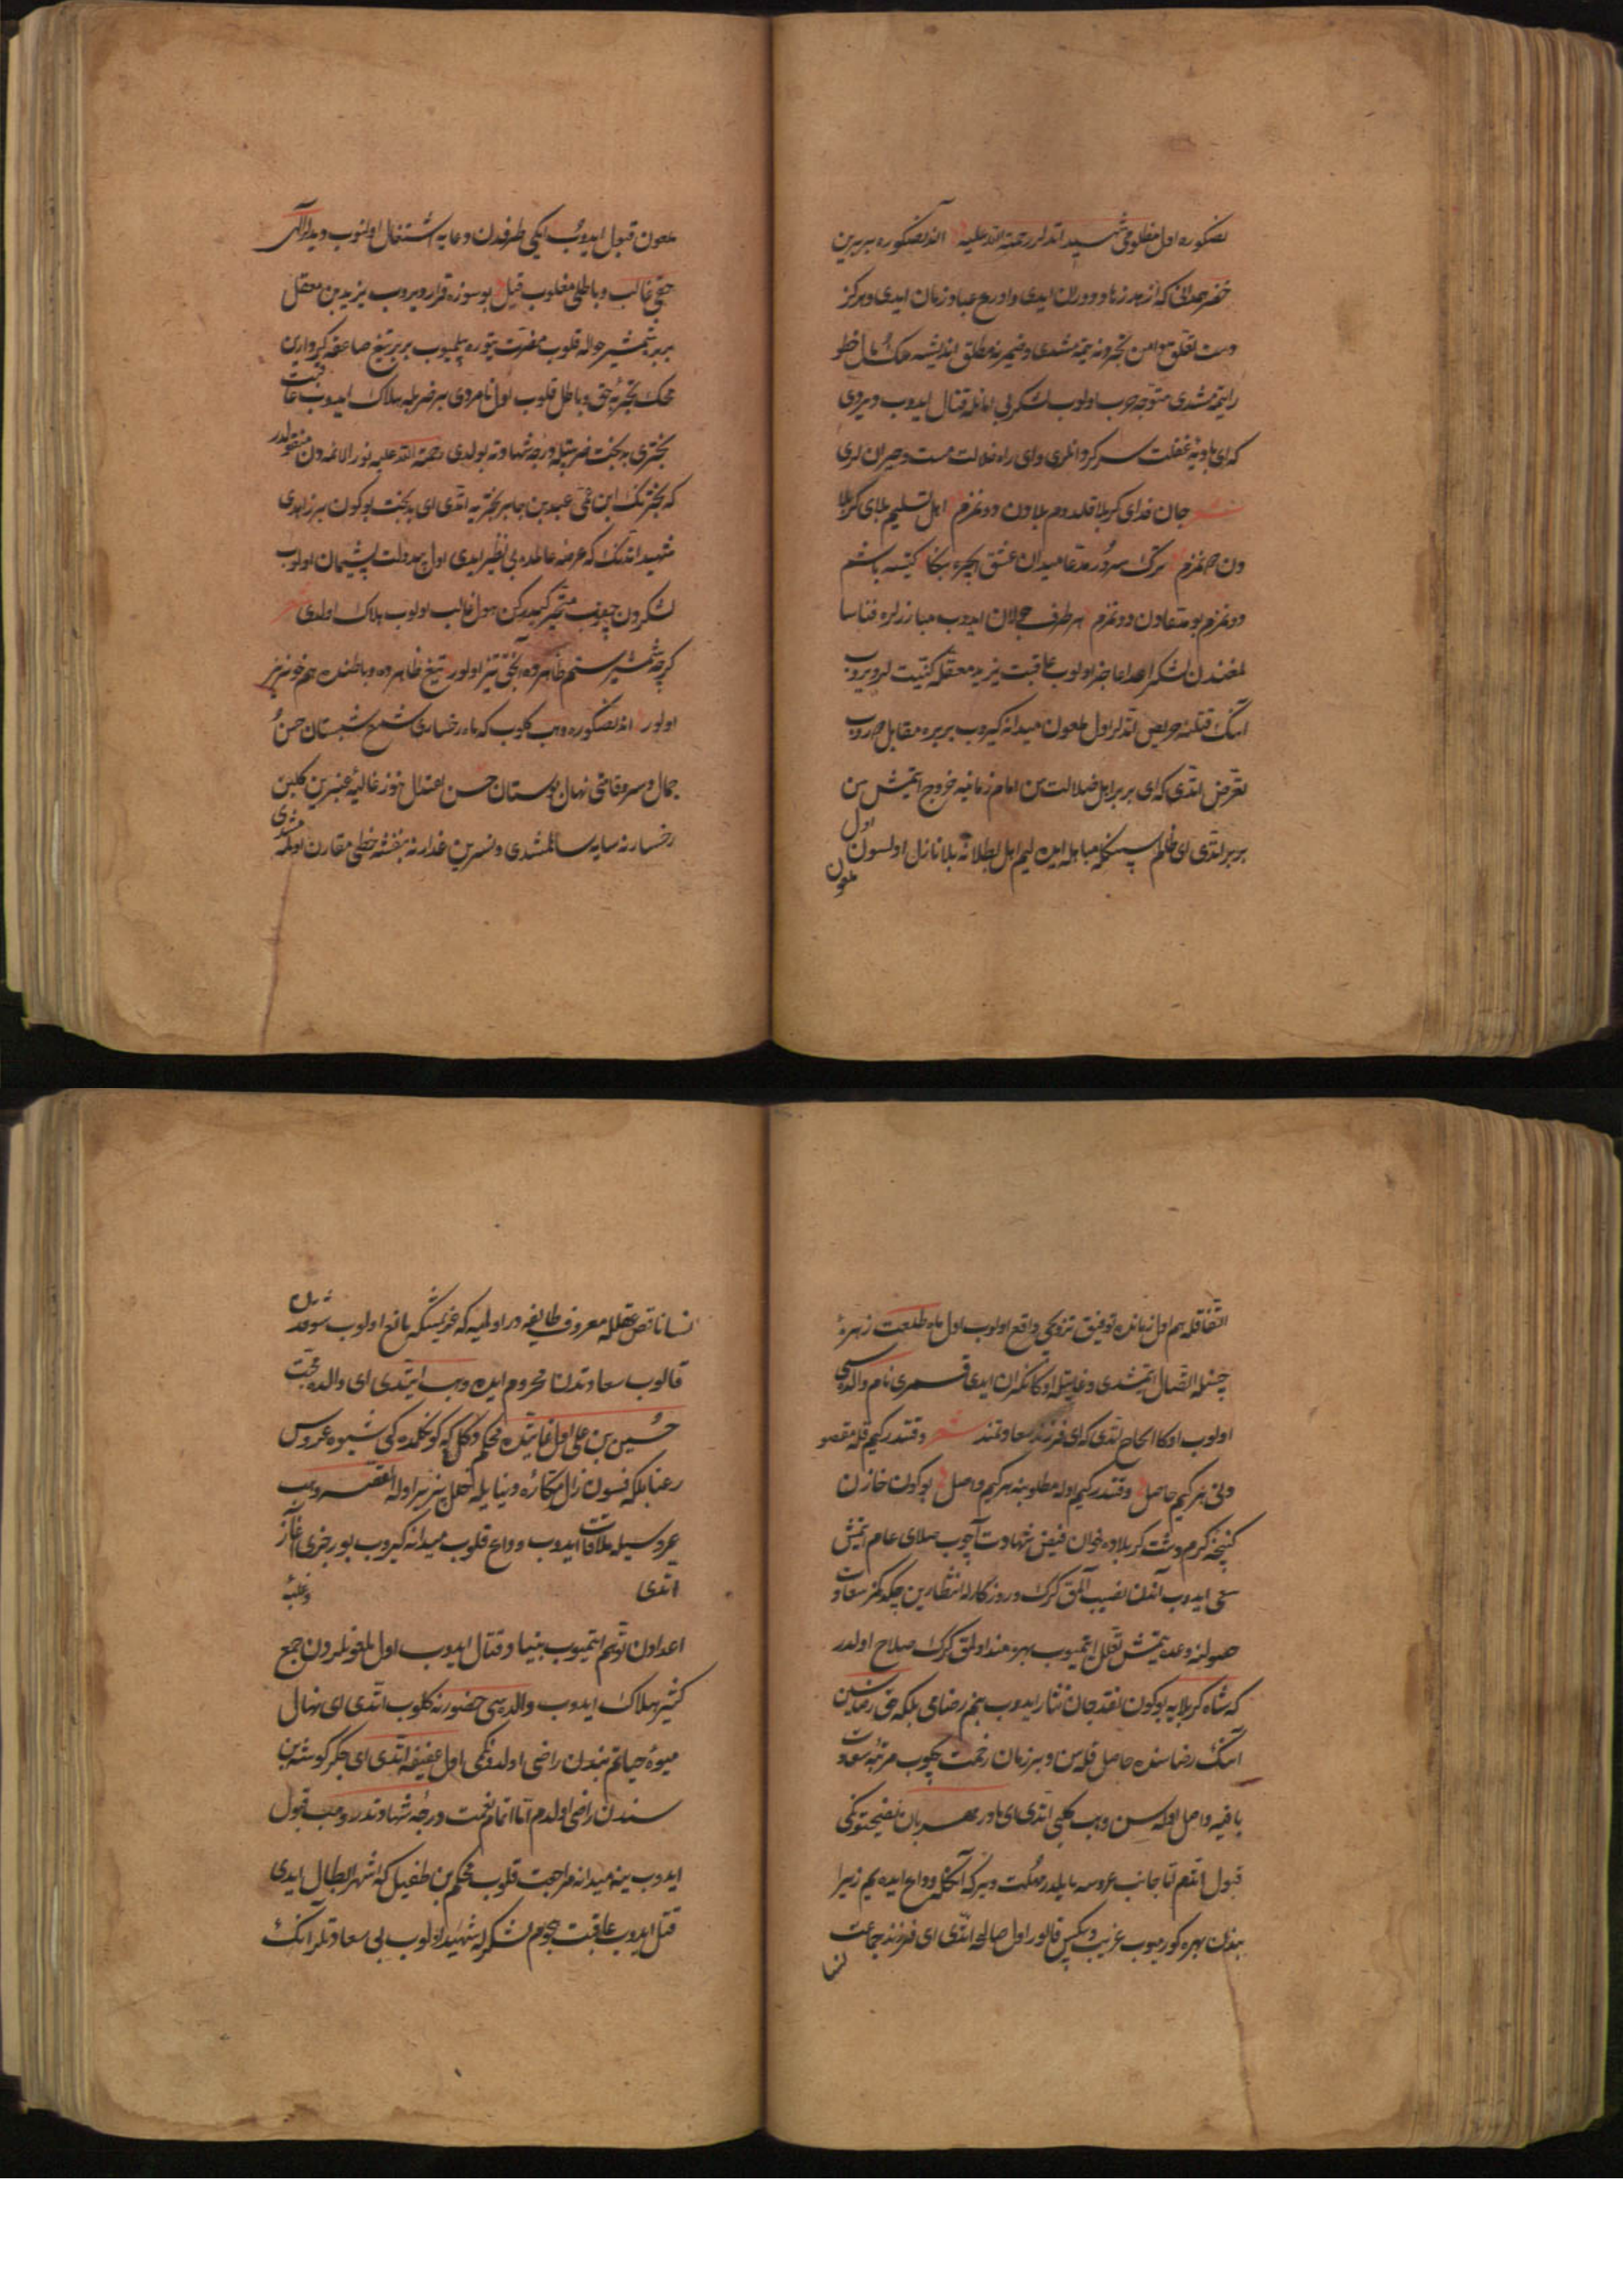 نصکوره اول مظلومی شهید اتدلر رحمة الله علیه اندنصکوره بریر بن
خضر همدانی که ازهد زهاد دوران ایدی و اورع عباد زمان ایدی و هرکز
دست تعلق دامن تجردینه یتمشدی و ضمیرنه مطلق اندیشه ملک و مال خطور
ایتمه مشدی متوجه حرب اولوب لشکر بی امانله قتال ایدوب دیردی
که ای بادیه غفلت سرکردانلری و ای راه ضلالت مست و حیرانلری
شعر جان فدای کربلا قلدوم بلادن دونمزم اهل تسلیم بلای کربلا
دن چقمزم ترک سرور مدعا میدان عشق ایچره بنکا کیتسه باشم
دونمزم بو متقادن دونمزم هر طرف جولان ایدوب مبارزلره فنا سا
لغندن لشکر اعدا عاجز اولوب عاقبت یزید معقله کتیت لر ویروب
انک قتلنه حریص اتدلر اول ملعون میدانه کیروب بریره مقابل دوروب
تعرض اتدی که ای بریر اهل ضلالت سن امام زمانیه خروج ایتمش سن
بریر اتدی ای ظالم سنکله مباهله ایده لیم اهل بطلانه بلا نازل اولسون اول
ملعون
ملعون قبول ایدوب ایکی طرفدن دعایه اشتغال اولنوب دیدیلر الهی
حقی غالب و باطلی مغلوب قیل بو سوزه قرار ویروب یزید بن معقل
بریره شمشیر حواله قلوب مضرت یتوره بیلمیوب بریر تیغ صاعقه کردارین
محک تجربه حق و باطل قلوب اول نامردی بر ضربله هلاک ایدوب عاقبت
بختری بدبخت ضربتیله درجه شهادته یولدی رحمة الله علیه نور الائمه دن منقولدر
که بخترنک ابن عمی عبید بن جابر بختریه اتدی ای بدبخت بوکون بر زاهدی
شهید اتدنک که عرصه عالمده بی نظیر ایدی اول بیدولت پشیمان اولوب
لشکردن چیقوب متحیر کیدرکن هول غالب اولوب هلاک اولدی شعر
کرچه شمشیر ستم ظاهرده انجق تیز اولور تیغ ظاهر ده و باطنده هم خونریز
اولور اندنصکوره وهب کلوب که ماه رخساری شمع شبستان حسن و
جمال و سرو قامتی نهال بوستان حسن اعتدال هنوز غالیه عنبرین کلبن
رخسارنه سایه سالمشدی و نسرین عذارنه بنفشه خطی مقارن اولمه مشدی
اتفاقله هم اول زمانده توفیق تزویجی واقع اولوب اول ماه طلعت زهره
جبینله اتصال ایتمشدی و غایتله اوکا نکران ایدی قمری نام والده سی
اولوب اوکا الحاح اتدی که ای فرزند سعادتمند شعر وقتدر کیم قله مقصو
دنی هر کیم حاصل وقتدر کیم اوله مطلوبنه هر کیم واصل بوکون خازن
کنجینه کرم دشت کربلاده خوان فیض شهادت آچوب صلای عام ایتمش
سعی ایدوب آندن نصیب آلمق کرک و روزکارله انتظارین چکدکمز سعادت
حصولنه وعده یتمش تعلل ایتمیوب بهره مند اولمق کرک صلاح اولدر
که شاه کربلایه بوکون نقد جان نثار ایدوب بنم رضامی بلکه حق رضاسین
انک رضاسنده حاصل قله سن و بر زمان زحمت چکوب مرتبه سعادت
باقیه واصل اوله سن وهب کلبی اتدی ای مادر مهربان نصیحتونکی
قبول اتدم اما جانب عروسه مایلدر مهلت ویر که آنکله وداع ایده یم زیرا
بندن بهره کورمیوب غریب و بیکس قالور اول صالحه اتدی ای فرزند جماعت
نسا
نسا ناقص عقلله معروف طایفه در اولمیه که عزیمتنکه مانع اولوب شوقدن
قالوب سعادتدن محروم ایده وهب ایتدی ای والده محبت
حسین بن علی اول غایتده محکم دکل که کونکلمده کی شیوه عروس
رعنا بلکه فسون زال مکاره دنیا ایله خلل پذیر اوله القصه وهب
عروسیله ملاقات ایدوب وداع قلوب میدانه کیروب بو رجزی آغاز
اتدی وغلبه
اعدادن توهم ایتمیوب بنیاد قتال ایدوب اول ملعونلردن جمع
کثیر هلاک ایدوب والده سی حضورنه کلوب اتدی ای نهال
میوه حیاتم بندن راضی اولدونکمی اول عفیفه اتدی ای جکر کوشه بن
سندن راضی اولدم اما اتمام نعمت درجه شهادتدر وهب قبول
ایدوب ینه میدانه مراجعت قلوب محکم بن طفیل که اشهر ابطال ایدی
قتل ایدوب عاقبت هجوم لشکرله شهید اولوب بی سعادتلر انک